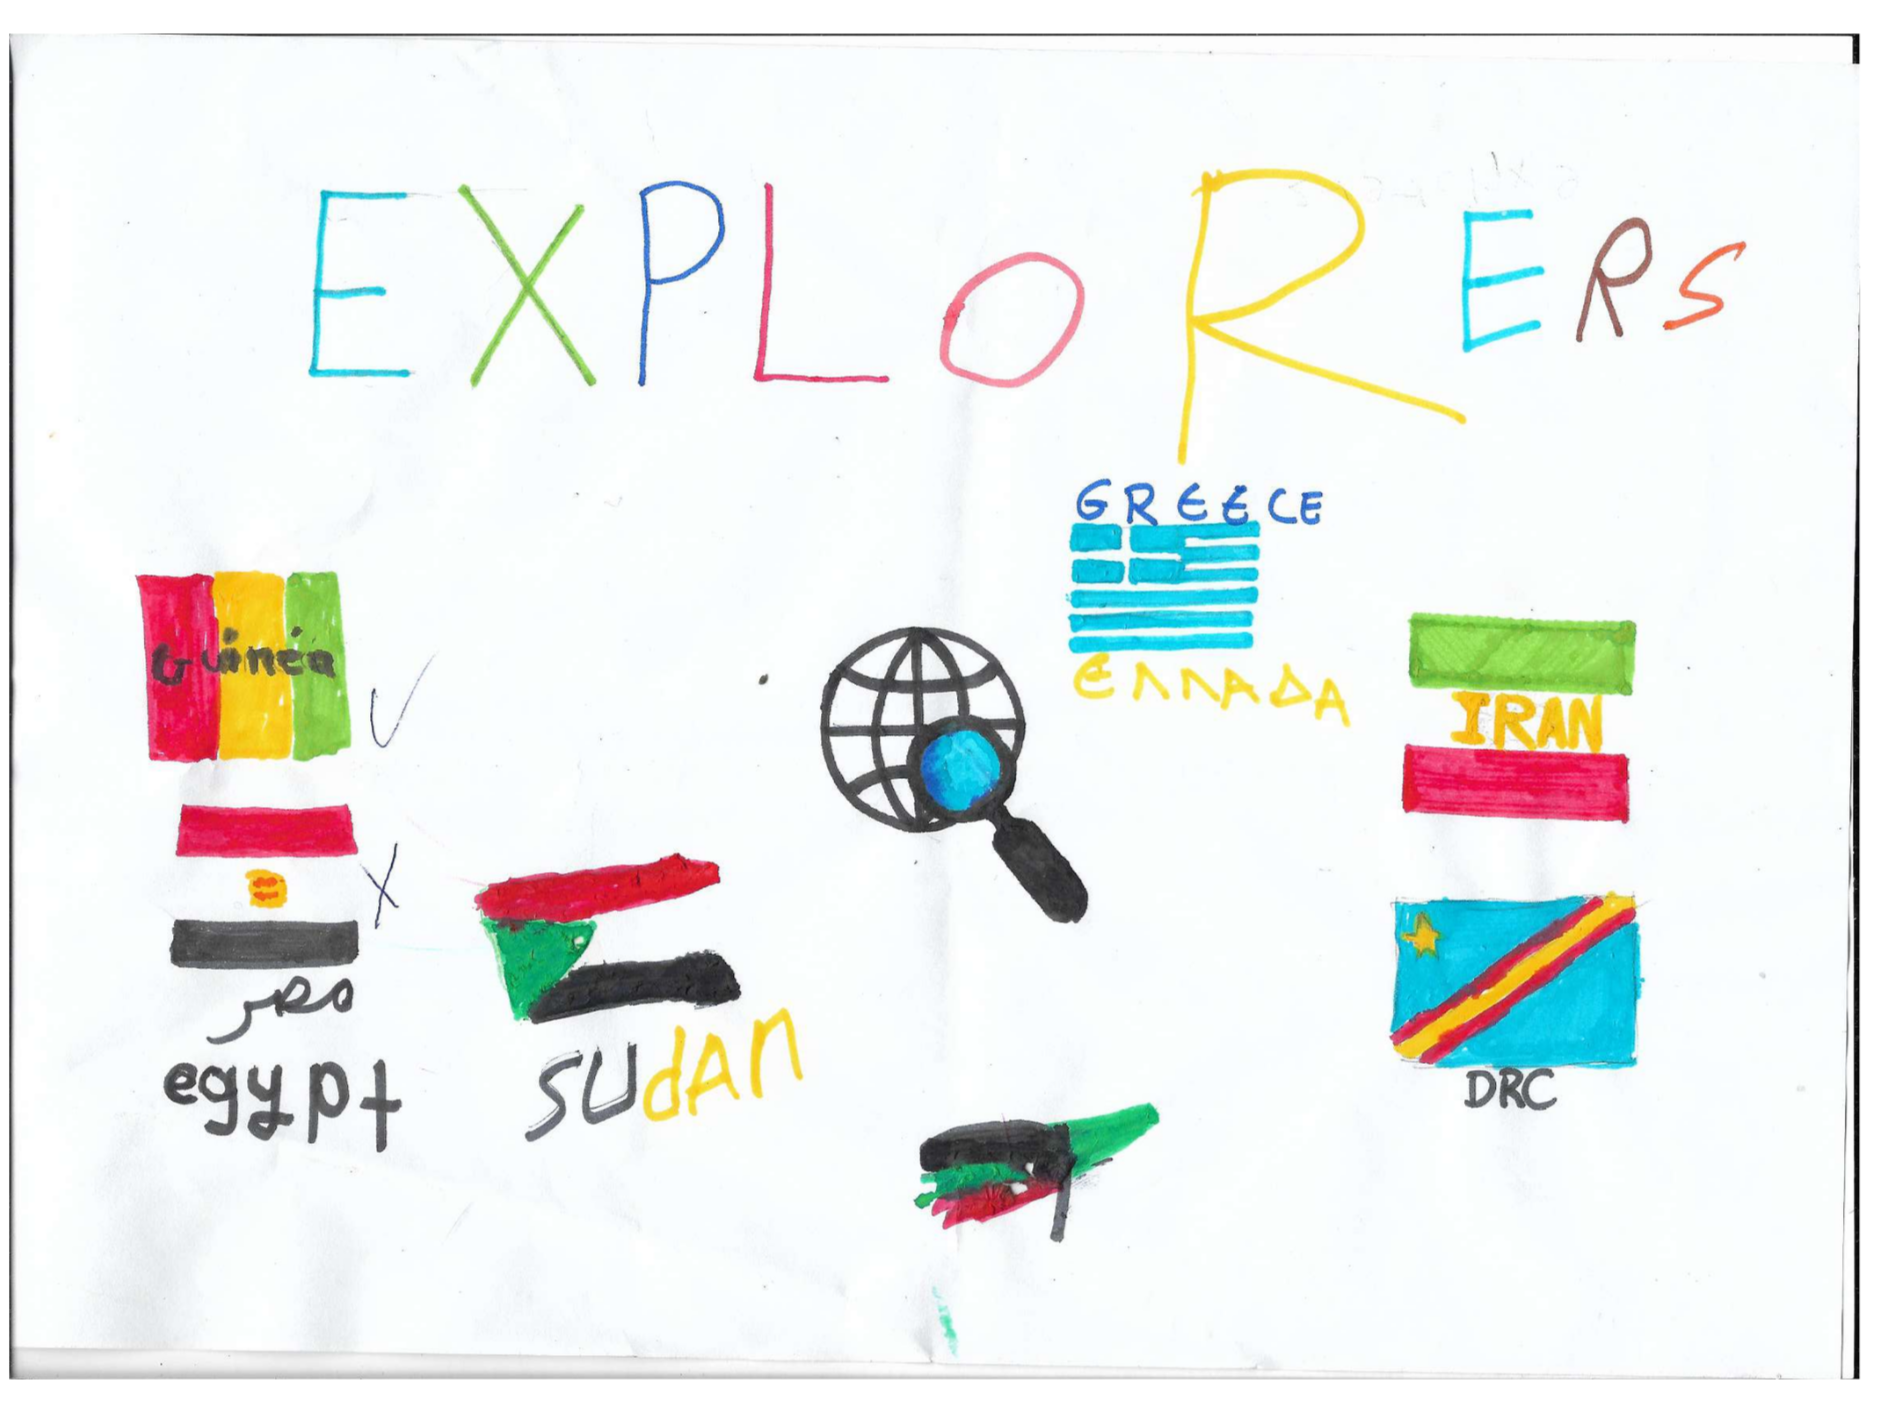 EXPLORERS
GREECE
Guinea
IRAN
مصر
egypt
SUdAN
DRC